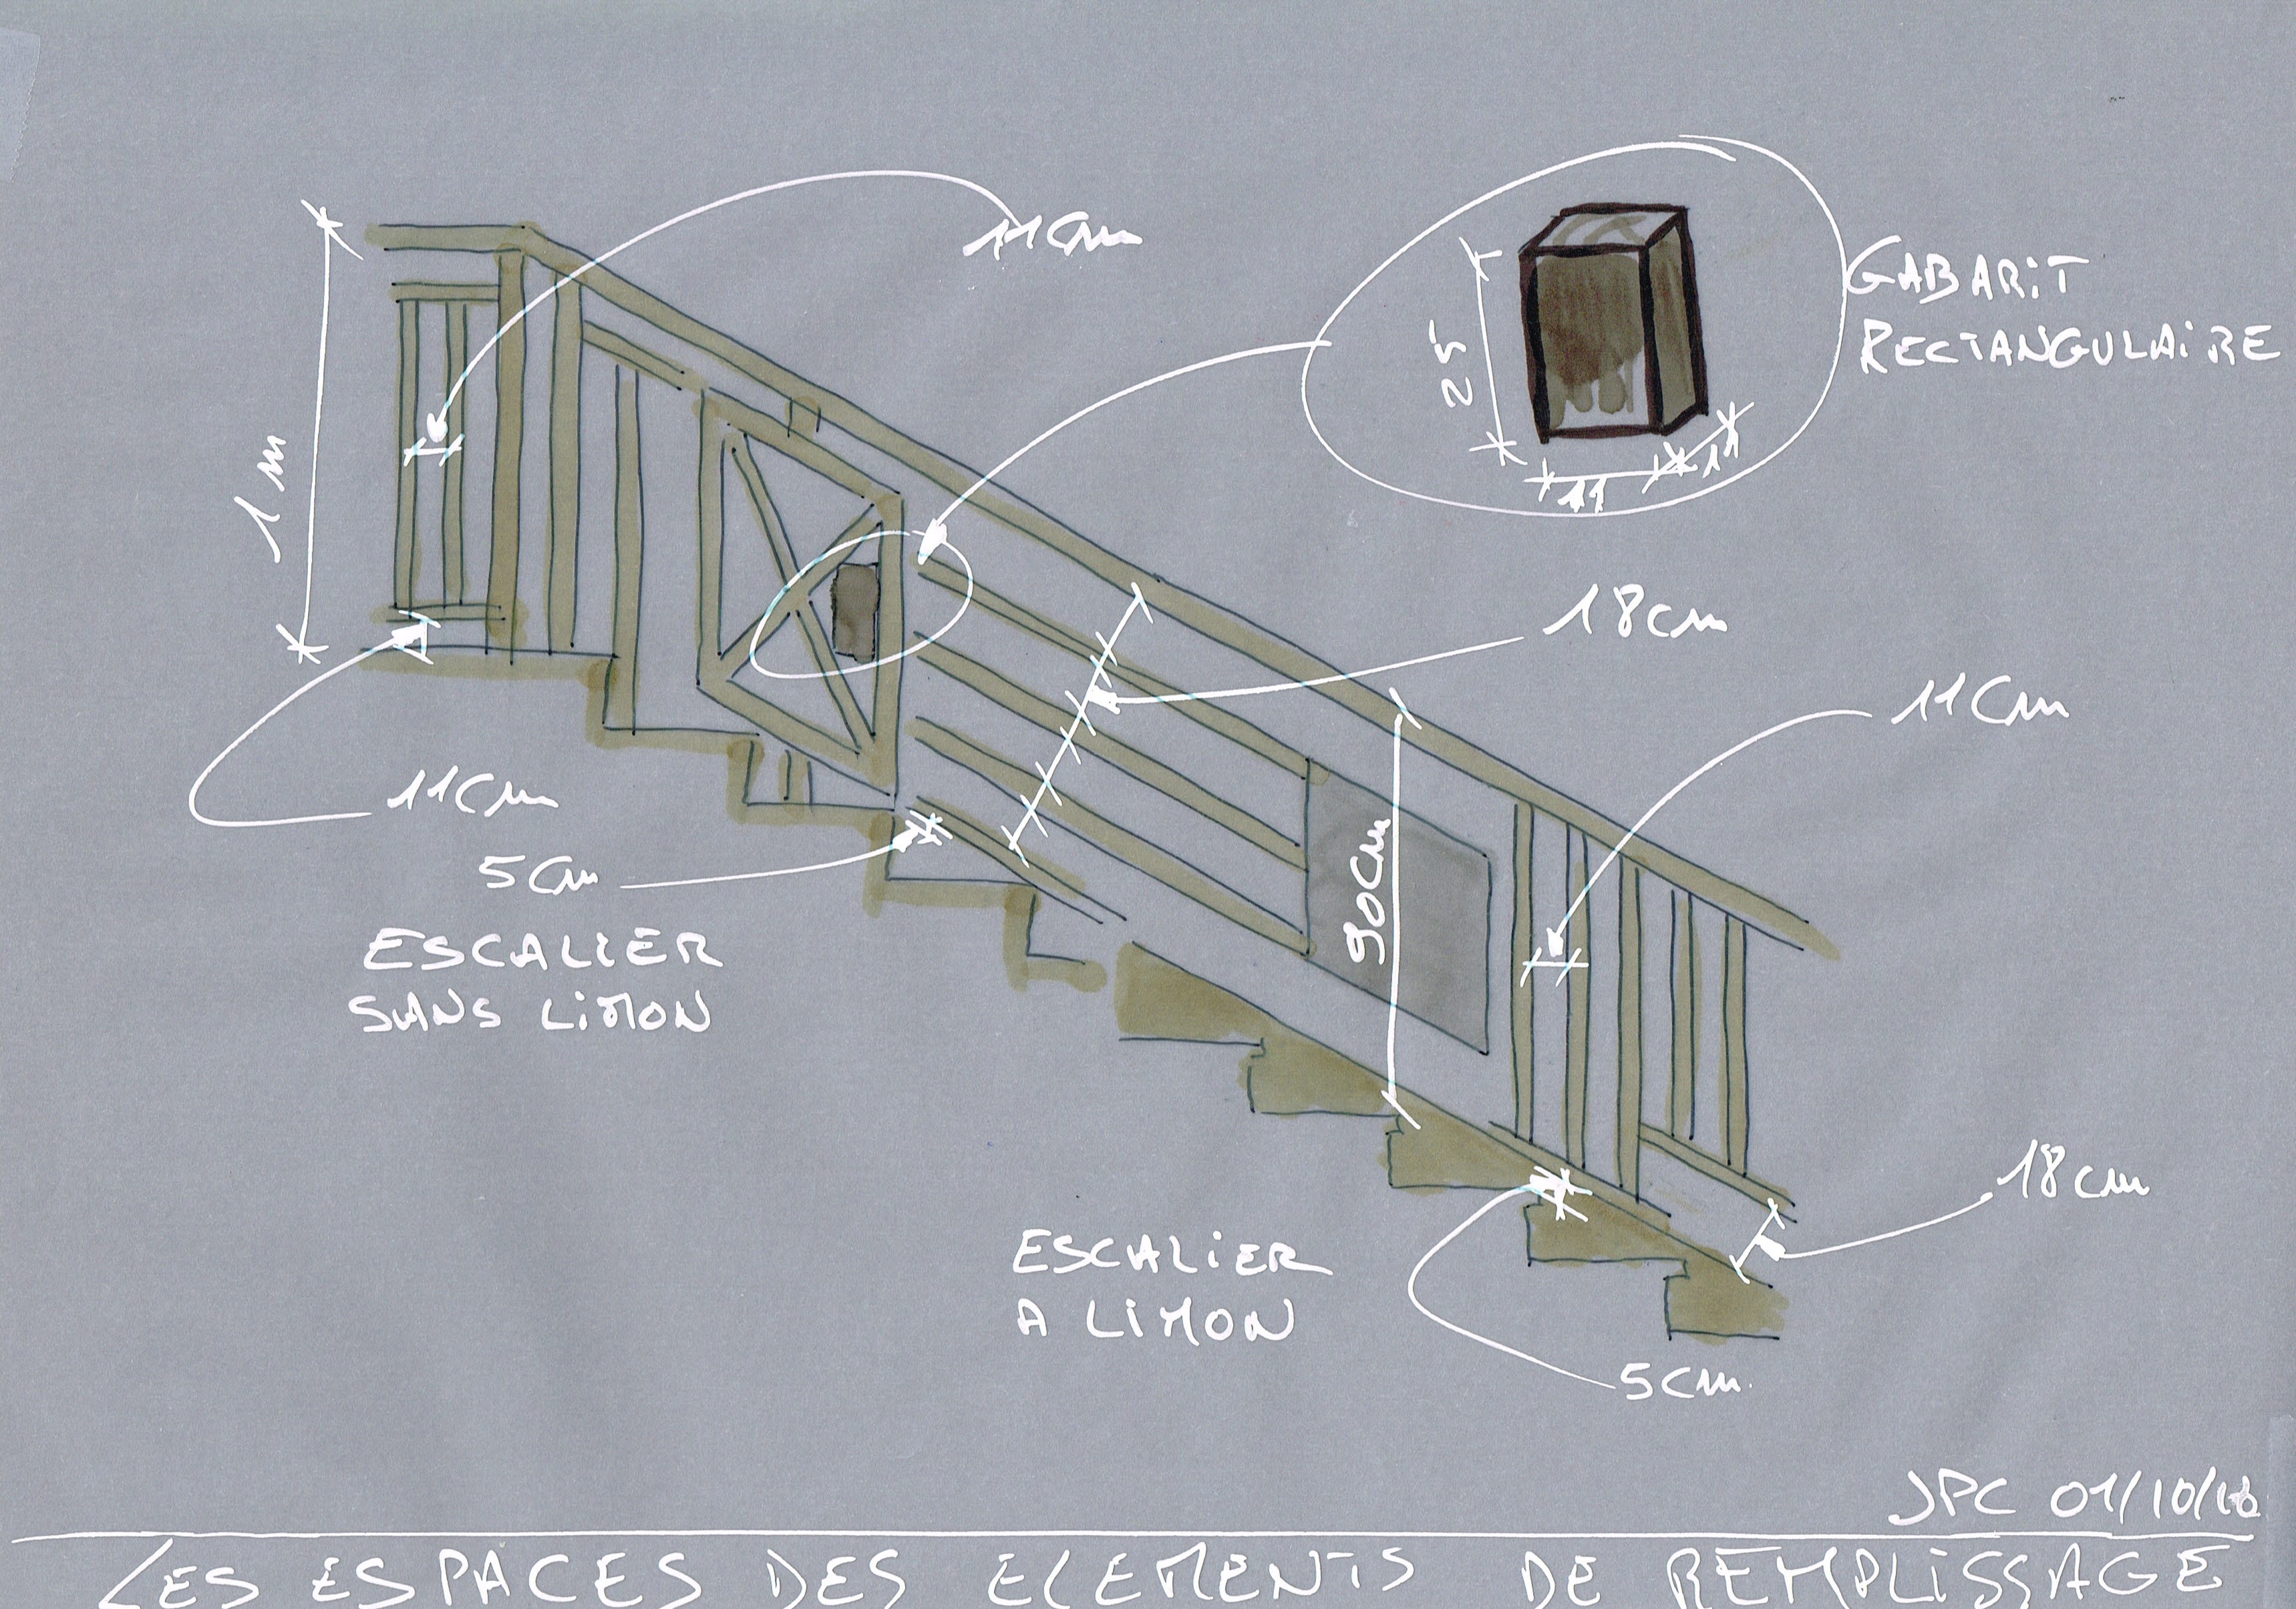 11cm
GABARIT
RECTANGULAIRE
25
11
11
1m
18cm
11cm
11cm
90cm
5cm
ESCALIER
SANS LIMON
18cm
ESCALIER
A LIMON
5cm.
JPC 01/10/
LES ESPACES DES ELEMENTS DE REMPLISSAGE